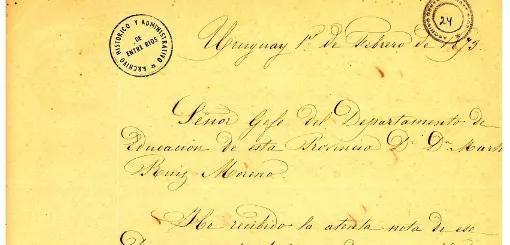 ARCHIVO HISTORICO Y ADMINISTRATIVO
DE
ENTRE RIOS
24
Uruguay 1º de Febrero de 1873.
Señor Gefe del Departamento de
Educación de esta Provincia Dr. Dn. Mart
Ruiz Moreno.
He recibido la atenta nota de ese